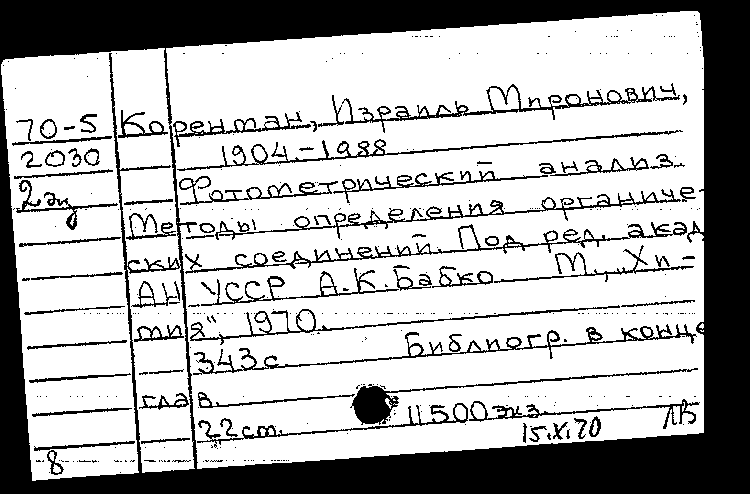 70-5 Коренман, Израиль Миронович,
2030 1904.-1988
2 экз Фотометрический анализ.
Методы определения органиче-
ских соединений. Под ред. акад
АН УССР А.К.Бабко М., „Хи-
мия", 1970.
343с. Библиогр. в конце
глав.
22см. 11500 экз.
15.X.70 ЛВ
8